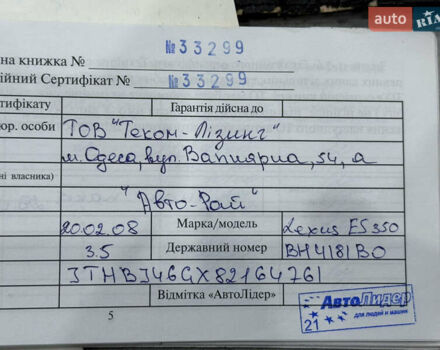 auto RIA
на книжка № №33299
ійний Сертифікат № №33299
тифікату Гарантія дійсна до
юр. особи ТОВ "Теком-Лізинг"
м. Одеса, вул. Вапняриа, 54, а
ні власника)
"Авто-Рай"
20.02.08 Марка/модель Lexus ES 350
3.5 Державний номер ВН4181ВО
JTHBJ46GX82164761
Відмітка «АвтоЛідер»
АвтоЛидер
для людей и машин
21
5